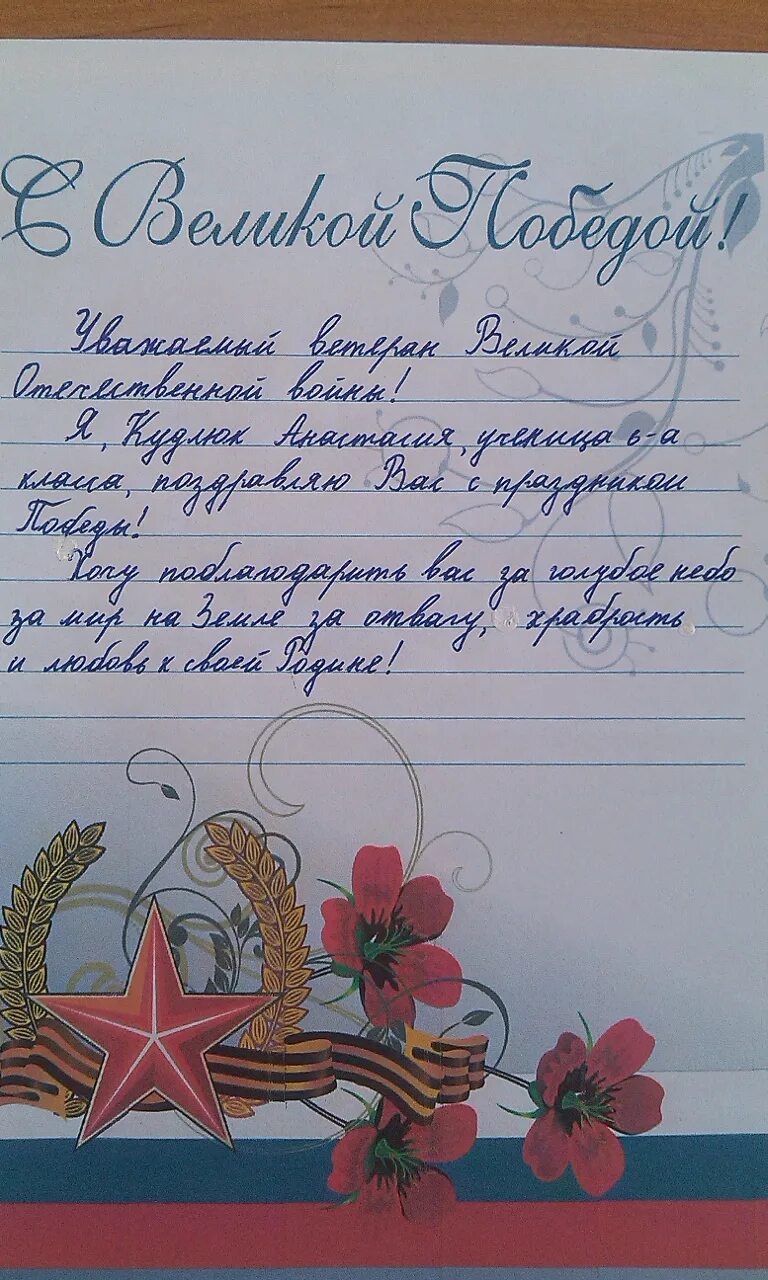 С Великой Победой!
Уважаемый ветеран Великой
Отечественной войны!
Я, Кудлюк Анастасия, ученица 6-а
класса, поздравляю Вас с праздником
Победы!
Хочу поблагодарить вас за голубое небо
за мир на Земле за отвагу, храбрость
и любовь к своей Родине!